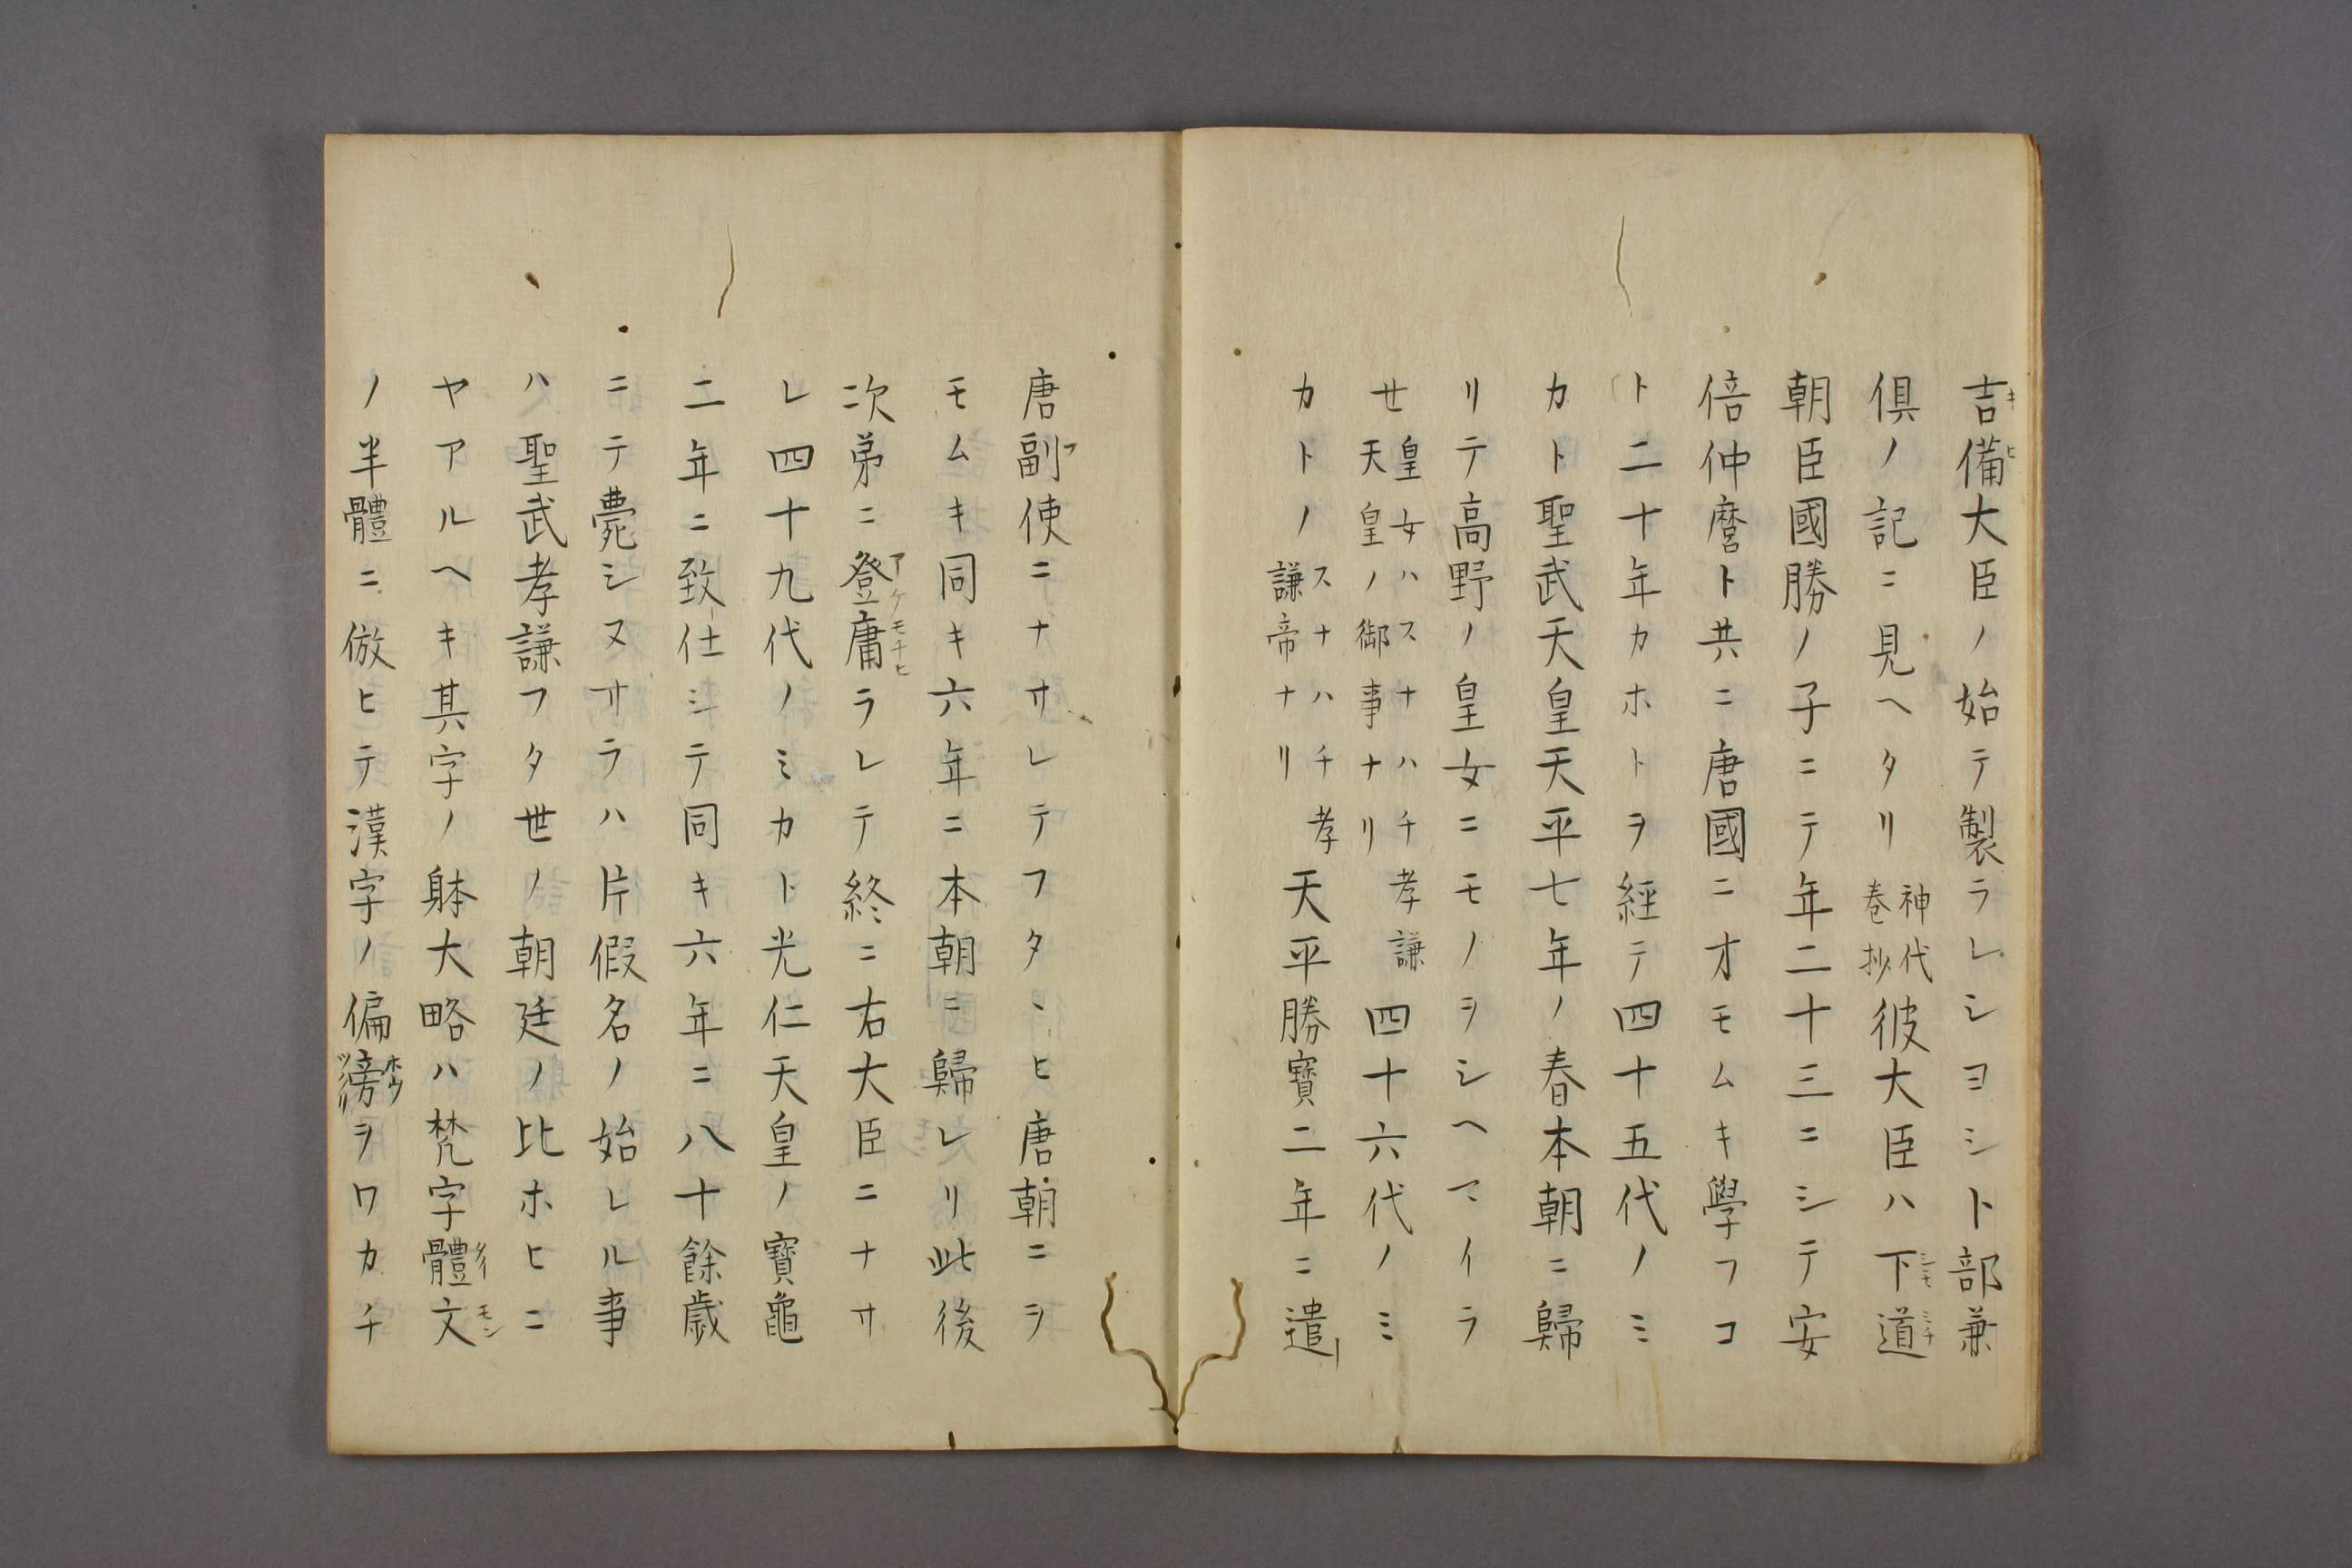 吉備大臣ノ始テ製ラレシヨシト部兼
倶ノ記ニ見ヘタリ神代巻抄彼大臣ハ下道
朝臣國勝ノ子ニテ年二十三ニシテ安
倍仲麿ト共ニ唐國ニオモムキ學フコ
ト二十年カホトヲ經テ四十五代ノミ
カト聖武天皇天平七年ノ春本朝ニ歸
リテ高野ノ皇女ニモノヲシヘマイラ
セ皇女ハスナハチ孝謙天皇ノ御事ナリ四十六代ノミ
カトノスナハチ孝謙帝ナリ天平勝寶二年ニ遣
唐副使ニナサレテフタヽヒ唐朝ニヲ
モムキ同キ六年ニ本朝ニ歸レリ此後
次弟ニ登庸ラレテ終ニ右大臣ニナサ
レ四十九代ノミカト光仁天皇ノ寶龜
二年ニ致仕シテ同キ六年ニ八十餘歳
ニテ薨シヌサラハ片假名ノ始レル事
ハ聖武孝謙フタ世ノ朝廷ノ比ホヒニ
ヤアルヘキ其字ノ躰大略ハ梵字體文
ノ半體ニ倣ヒテ漢字ノ偏滂ヲワカチ